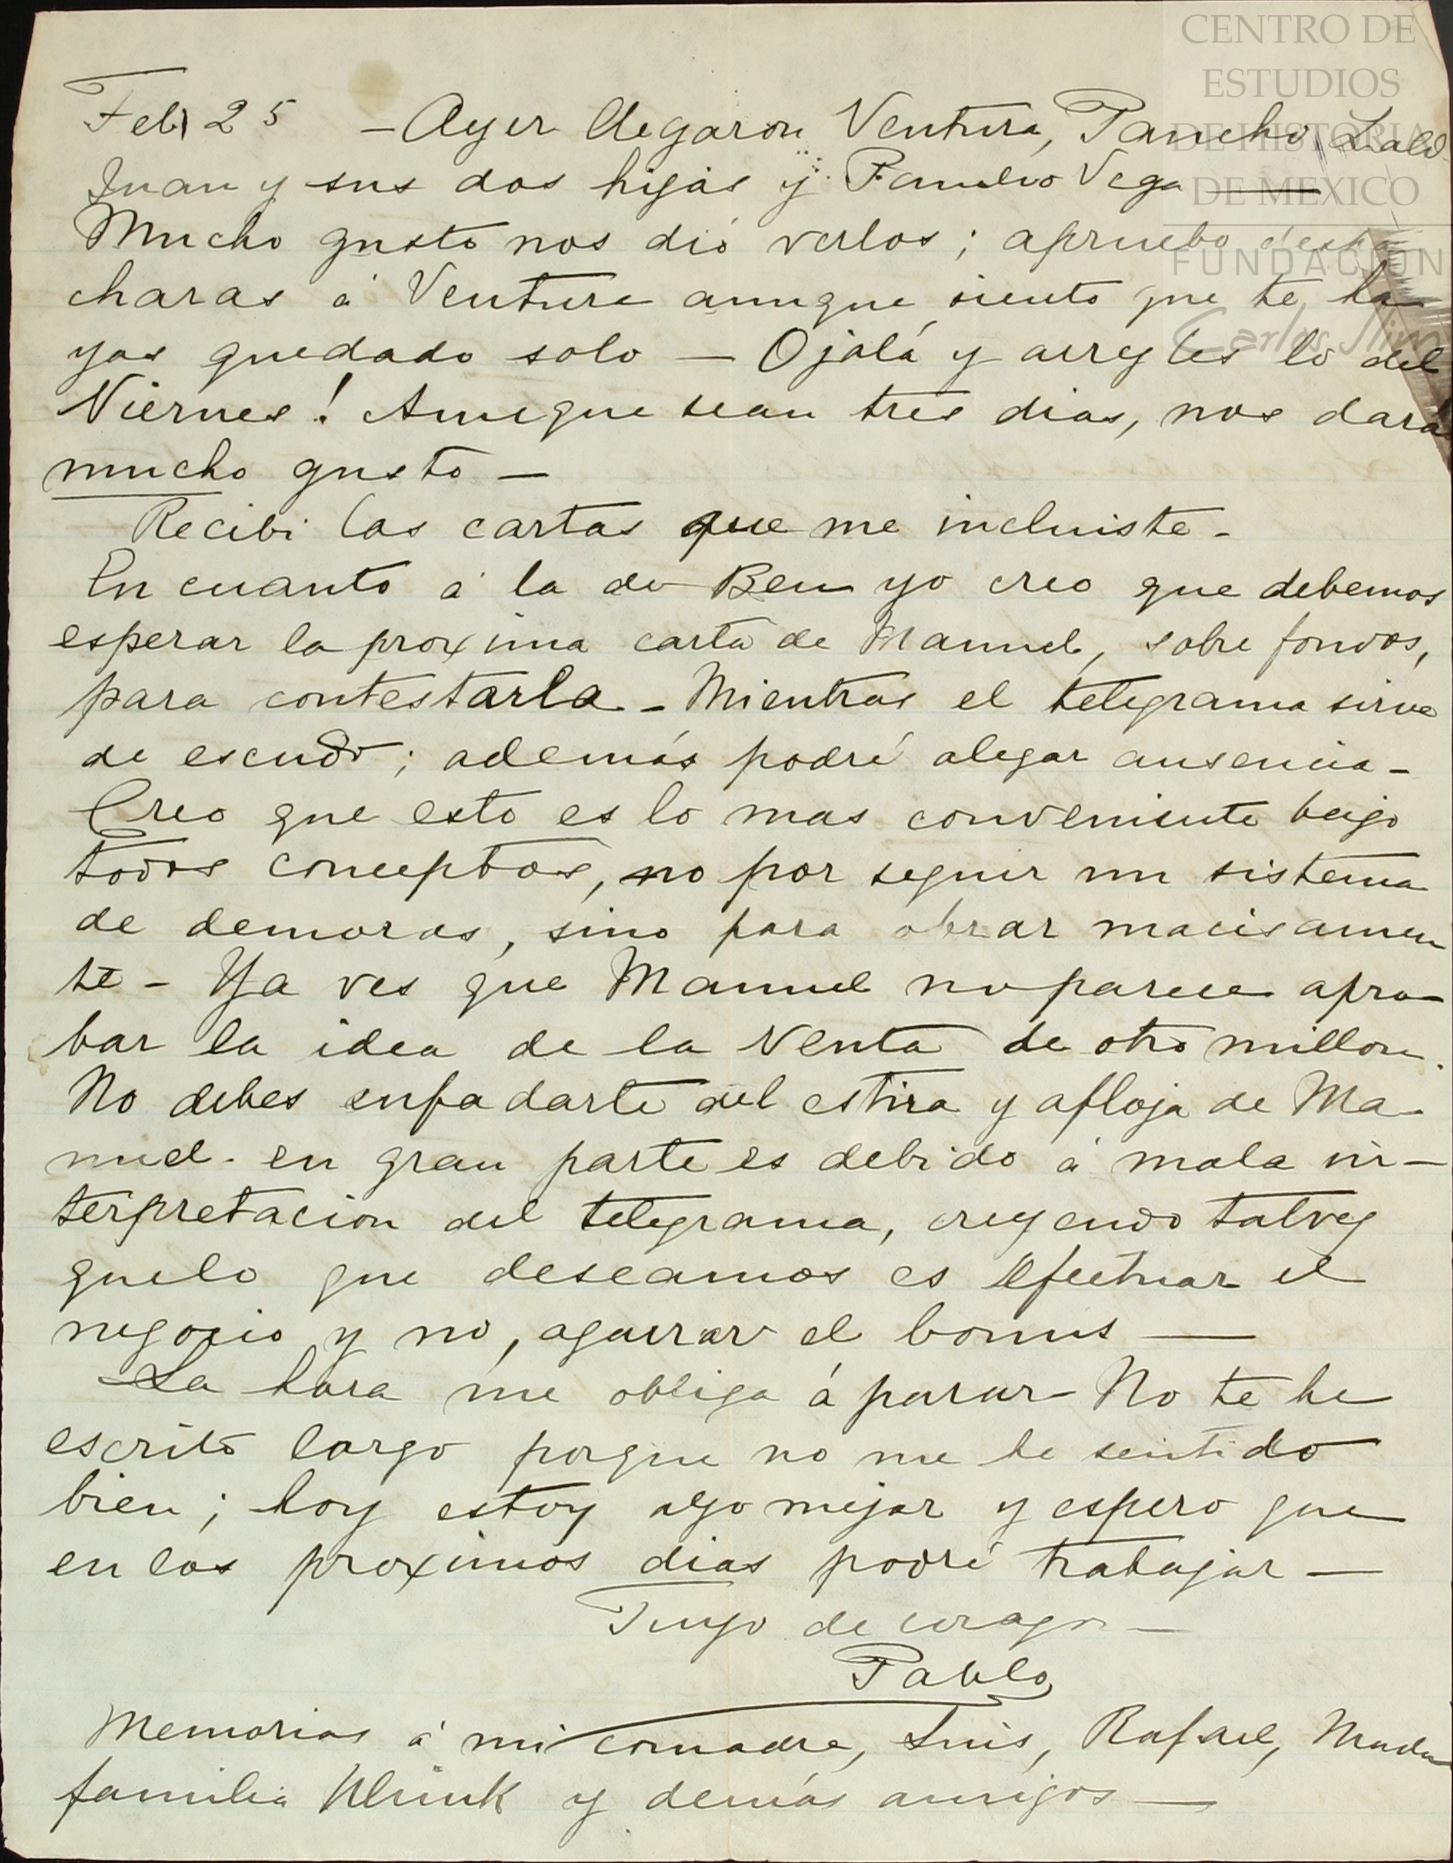 CENTRO DE
ESTUDIOS
DE HISTORIA
DE MEXICO
FUNDACIÓN
Carlos Slim
Feb 25 — Ayer llegaron Ventura, Pancho, Lalo
Juan y sus dos hijas y Vega
Mucho gusto nos dió verlos; apruebo
charas á Ventura aunque siento que te ha
yas quedado solo — Ojalá y arregles lo del
Viernes! Aunque sean tres dias, nos dará
mucho gusto —
Recibi las cartas que me incluiste -
En cuanto á la de Ben yo creo que debemos
esperar la proxima carta de Manuel, sobre fondos,
para contestarla - Mientras el telegrama sirve
de escudo; además podré alegar ausencia -
Creo que esto es lo mas conveniente bajo
todos conceptos, no por seguir un sistema
de demoras, sino para obrar macisamen
te - Ya ves que Manuel no parece apro-
bar la idea de la venta de otro millon.
No debes enfadarte del estira y afloja de Ma-
nuel - en gran parte es debido á mala in-
terpretacion del telegrama, creyendo talvez
quelo que deseamos es efectuar el
negocio y no, agarrar el bonus —
La hora me obliga á parar - No te he
escrito largo porque no me he sentido
bien; hoy estoy algo mejor y espero que
en los proximos dias podré trabajar —
Tuyo de corazon —
Pablo
Memorias á mi comadre, Luis, Rafael,
familia y demás amigos —